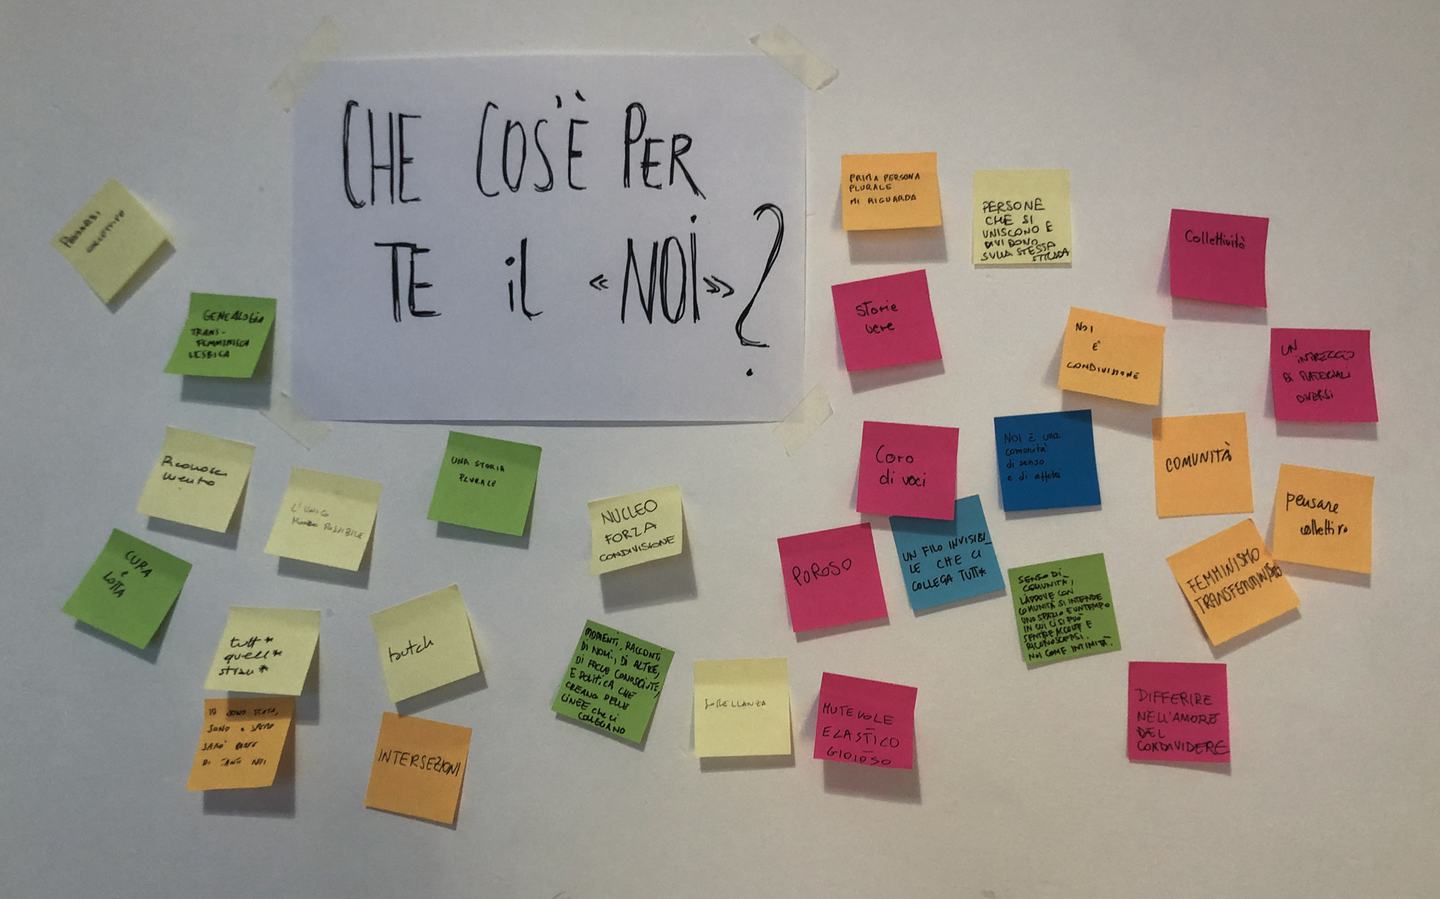 CHE COS'È PER
TE iL «NOi»?
PRIMA PERSONA
PLURALE
MI RIGUARDA
PERSONE
CHE SI
UNISCONO E
DIVIDONO
SULLA STESSA
STRADA
Collettività
GENEALOGIA
TRANS-
FEMMINISTA
LESBICA
Storie
vere
NOI
È
CONDIVISIONE
UN
INTRECCIO
DI MATERIALI
DIVERSI
Riconosci
mento
L'UNICO
MONDO POSSIBILE
UNA STORIA
PLURALE
NUCLEO
FORZA
CONDIVISIONE
Coro
di voci
NOI È una
comunità
di senso
e di affetti
COMUNITÀ
pensare
collettivo
CURA
E
LOTTA
POROSO
UN FILO INVISIBI_
LE CHE CI
COLLEGA TUTT*
SENSO DI
COMUNITÀ,
LADDOVE CON
COMUNITÀ SI INTENDE
UNO SPAZIO E UN TEMPO
IN CUI CI SI PUÒ
SENTIRE ACCOLTE E
RICONOSCERSI.
NOI COME INTIMITÀ.
FEMMINISMO
TRANSFEMMINISMO
tutt*
quell*
stran*
butch
MOMENTI, RACCONTI
DI NOMI, DI ALTRE,
DI FACCE CONOSCIUTE,
E POLITICA CHE
CREANO DELLE
LINEE che ci
COLLEGANO
SORELLANZA
MUTEVOLE
ELASTICO
GIOIOSO
DIFFERIRE
NELL'AMORE
DEL
CONDIVIDERE
IO SONO STATA,
SONO E SPERO
SARÒ PARTE
DI TANTI NOI
INTERSEZIONI